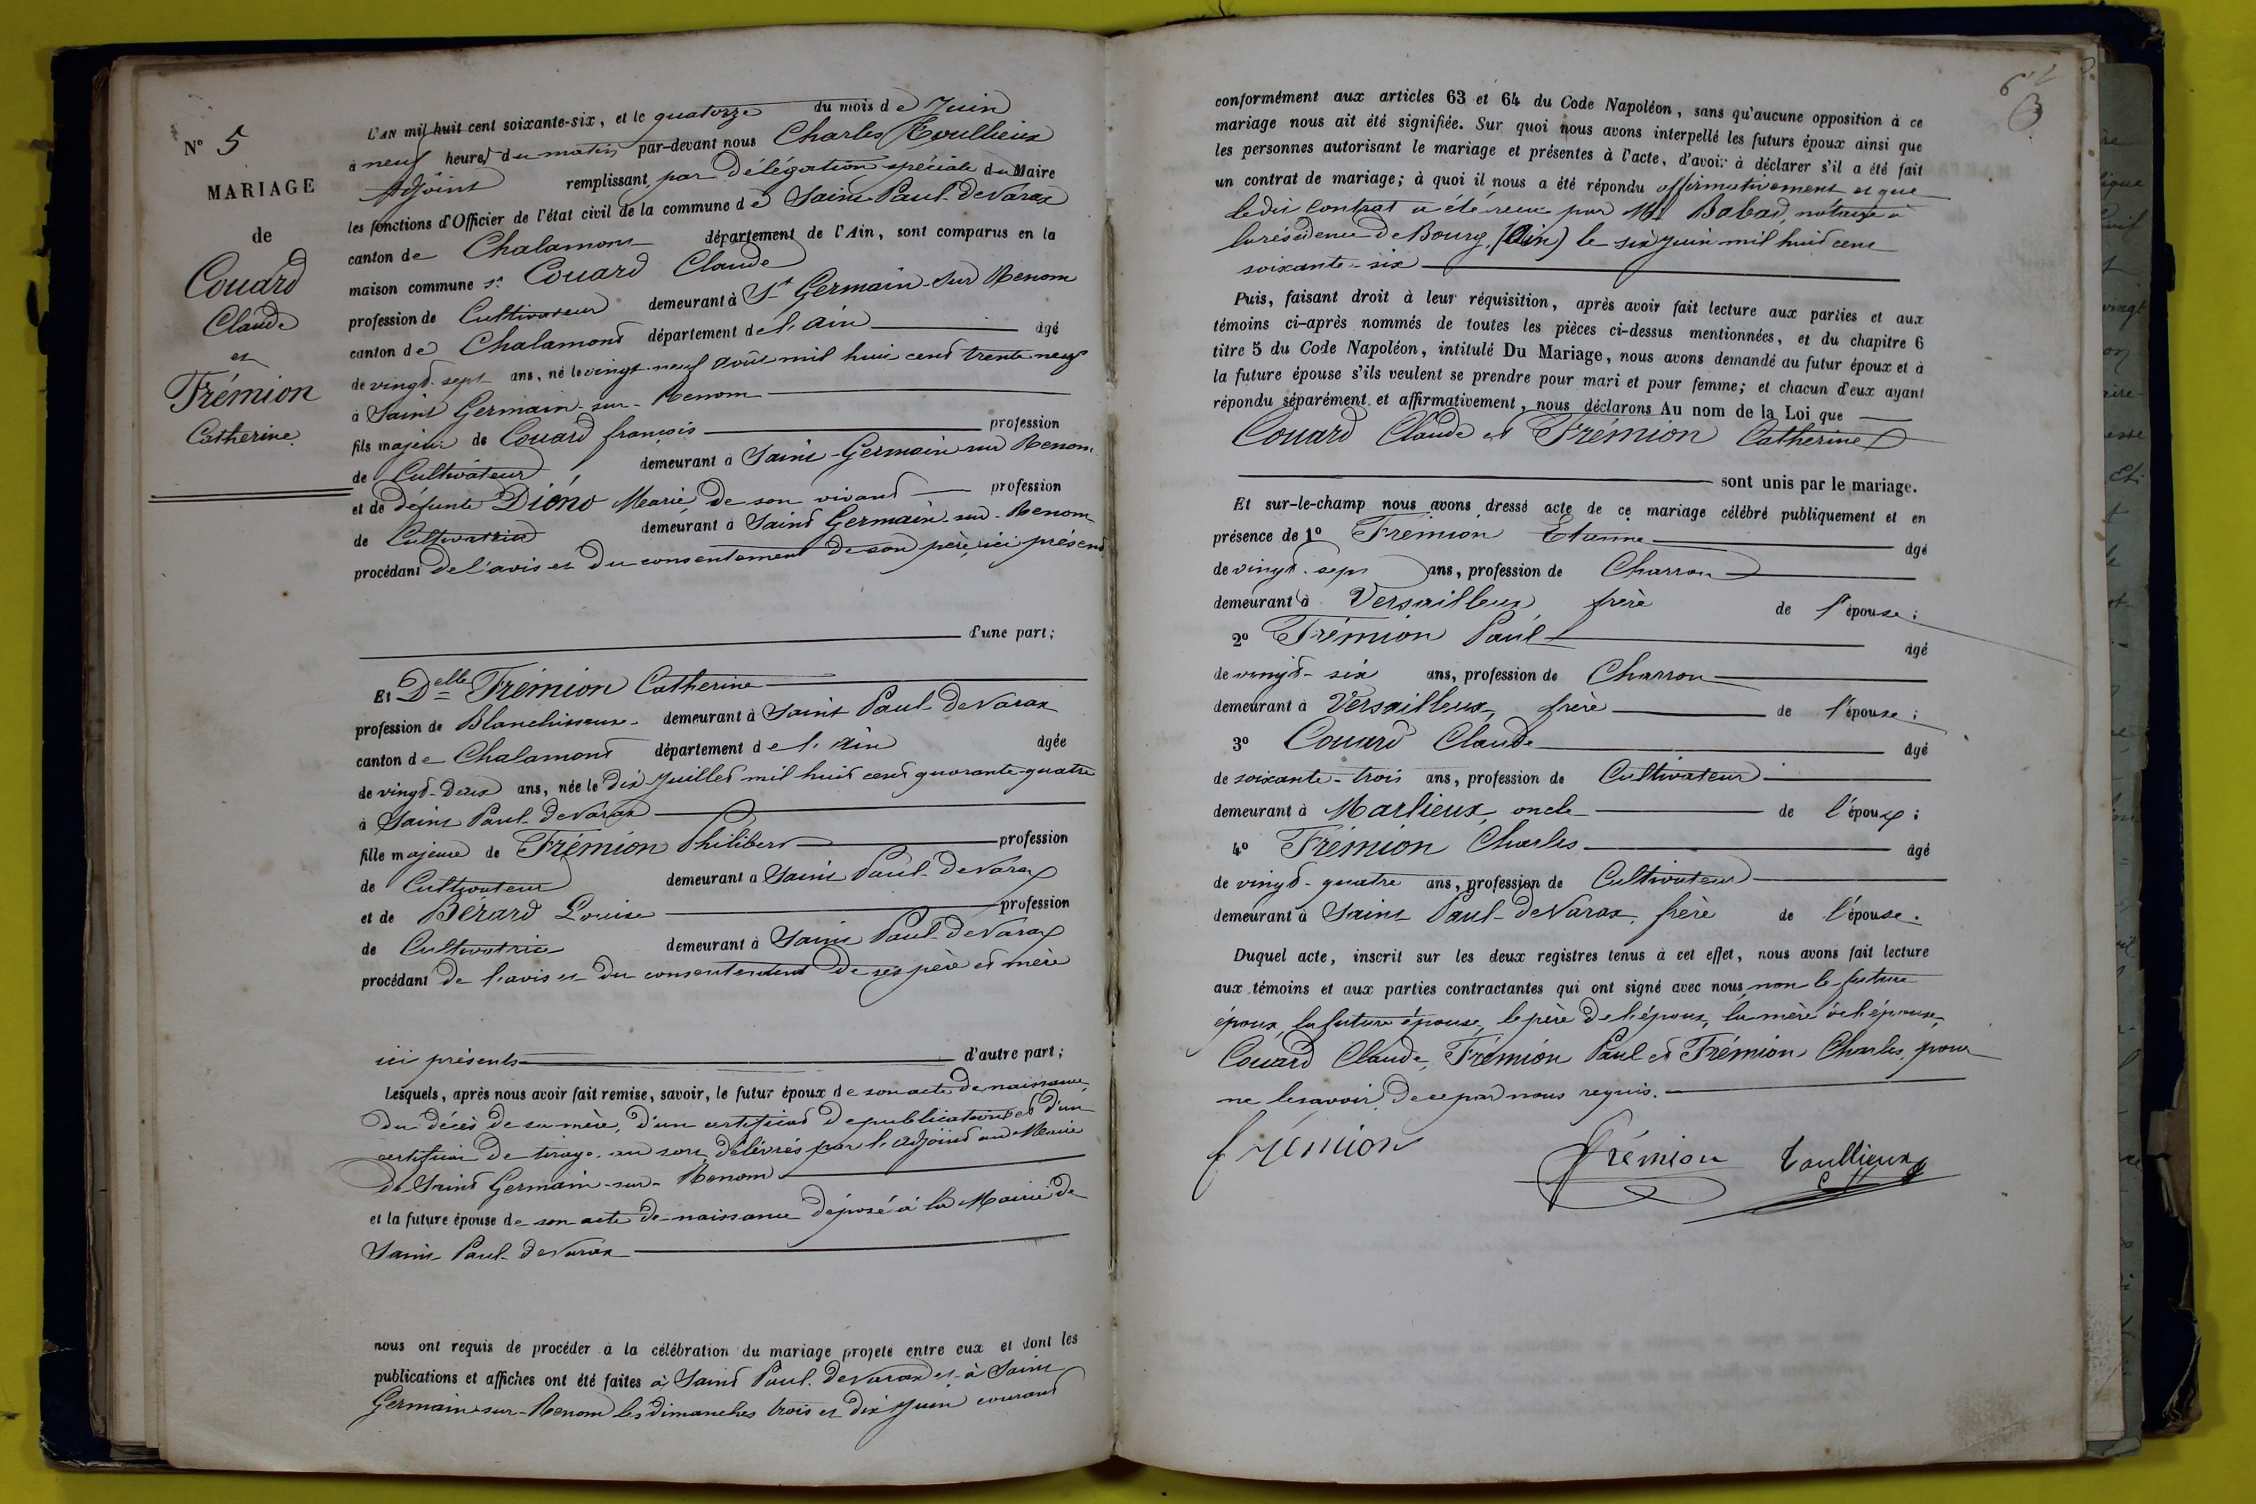 N° 5
MARIAGE
de
Couard
Claude
et
Frémion
Catherine
L'AN mil huit cent soixante-six, et le quatorze du mois de Juin
à neuf heures du matin par-devant nous Charles Toullieux
Adjoint remplissant par délégation spéciale du Maire
les fonctions d'Officier de l'état civil de la commune de Saint Paul de Varax
canton de Chalamont département de l'Ain, sont comparus en la
maison commune sr Couard Claude
profession de Cultivateur demeurant à St Germain-sur Renom
canton de Chalamont département de l'ain âgé
de vingt-sept ans, né le vingt-neuf août mil huit cent trente neuf
à Saint Germain-sur-Renom
fils majeur de Couard françois profession
de Cultivateur demeurant à Saint-Germain sur Renom
et de défunte Diéno Marie, de son vivant profession
de Cultivatrice demeurant à Saint Germain-sur-Renom
procédant de l'avis et du consentement de son père, ici présent
d'une part;
Et Delle Frémion Catherine
profession de Blanchisseuse demeurant à Saint Paul de Varax
canton de Chalamont département de l'ain âgée
de vingt-deux ans, née le dix Juillet mil huit cent quarante quatre
à Saint Paul de Varax
fille majeure de Frémion Philibert profession
de Cultivateur demeurant a Saint Paul de Varax
et de Bérard Louise profession
de Cultivatrice demeurant à Saint Paul de Varax
procédant de l'avis et du consentement de ses père et mère
ici présents d'autre part;
Lesquels, après nous avoir fait remise, savoir, le futur époux de son acte de naissance,
du décès de sa mère, d'un certificat de publications et d'un
certificat de tirage au sort, délivrés par l'adjoint au Maire
de Saint Germain-sur-Renom
et la future épouse de son acte de naissance déposé à la Mairie de
Saint Paul de Varax
nous ont requis de procéder à la célébration du mariage projeté entre eux et dont les
publications et affiches ont été faites à Saint Paul de Varax et à Saint
Germain-sur-Renom les dimanches trois et dix Juin courant
6
conformément aux articles 63 et 64 du Code Napoléon, sans qu'aucune opposition à ce
mariage nous ait été signifiée. Sur quoi nous avons interpellé les futurs époux ainsi que
les personnes autorisant le mariage et présentes à l'acte, d'avoir à déclarer s'il a été fait
un contrat de mariage; à quoi il nous a été répondu affirmativement et que
ledit contrat a été reçu par Me Babad, notaire à
la résidence de Bourg, (Ain) le six juin mil huit cent
soixante-six
Puis, faisant droit à leur réquisition, après avoir fait lecture aux parties et aux
témoins ci-après nommés de toutes les pièces ci-dessus mentionnées, et du chapitre 6
titre 5 du Code Napoléon, intitulé Du Mariage, nous avons demandé au futur époux et à
la future épouse s'ils veulent se prendre pour mari et pour femme; et chacun d'eux ayant
répondu séparément et affirmativement, nous déclarons Au nom de la Loi que
Couard Claude et Frémion Catherine
sont unis par le mariage.
Et sur-le-champ nous avons dressé acte de ce mariage célébré publiquement et en
présence de 1° Frémion Etienne âgé
de vingt-sept ans, profession de Charron
demeurant à Versailleux frère de l'épouse;
2° Frémion Paul âgé
de vingt-six ans, profession de Charron
demeurant à Versailleux, frère de l'épouse;
3° Couard Claude âgé
de soixante-trois ans, profession de Cultivateur
demeurant à Marlieux, oncle de l'époux;
4° Frémion Charles âgé
de vingt-quatre ans, profession de Cultivateur
demeurant à Saint Paul-de Varax, frère de l'épouse.
Duquel acte, inscrit sur les deux registres tenus à cet effet, nous avons fait lecture
aux témoins et aux parties contractantes qui ont signé avec nous, non le future
époux, la future épouse, le père de l'époux, la mère de l'épouse,
Couard Claude, Frémion Paul et Frémion Charles, pour
ne le savoir, de ce par nous requis.
frémion
frémion
Toullieux